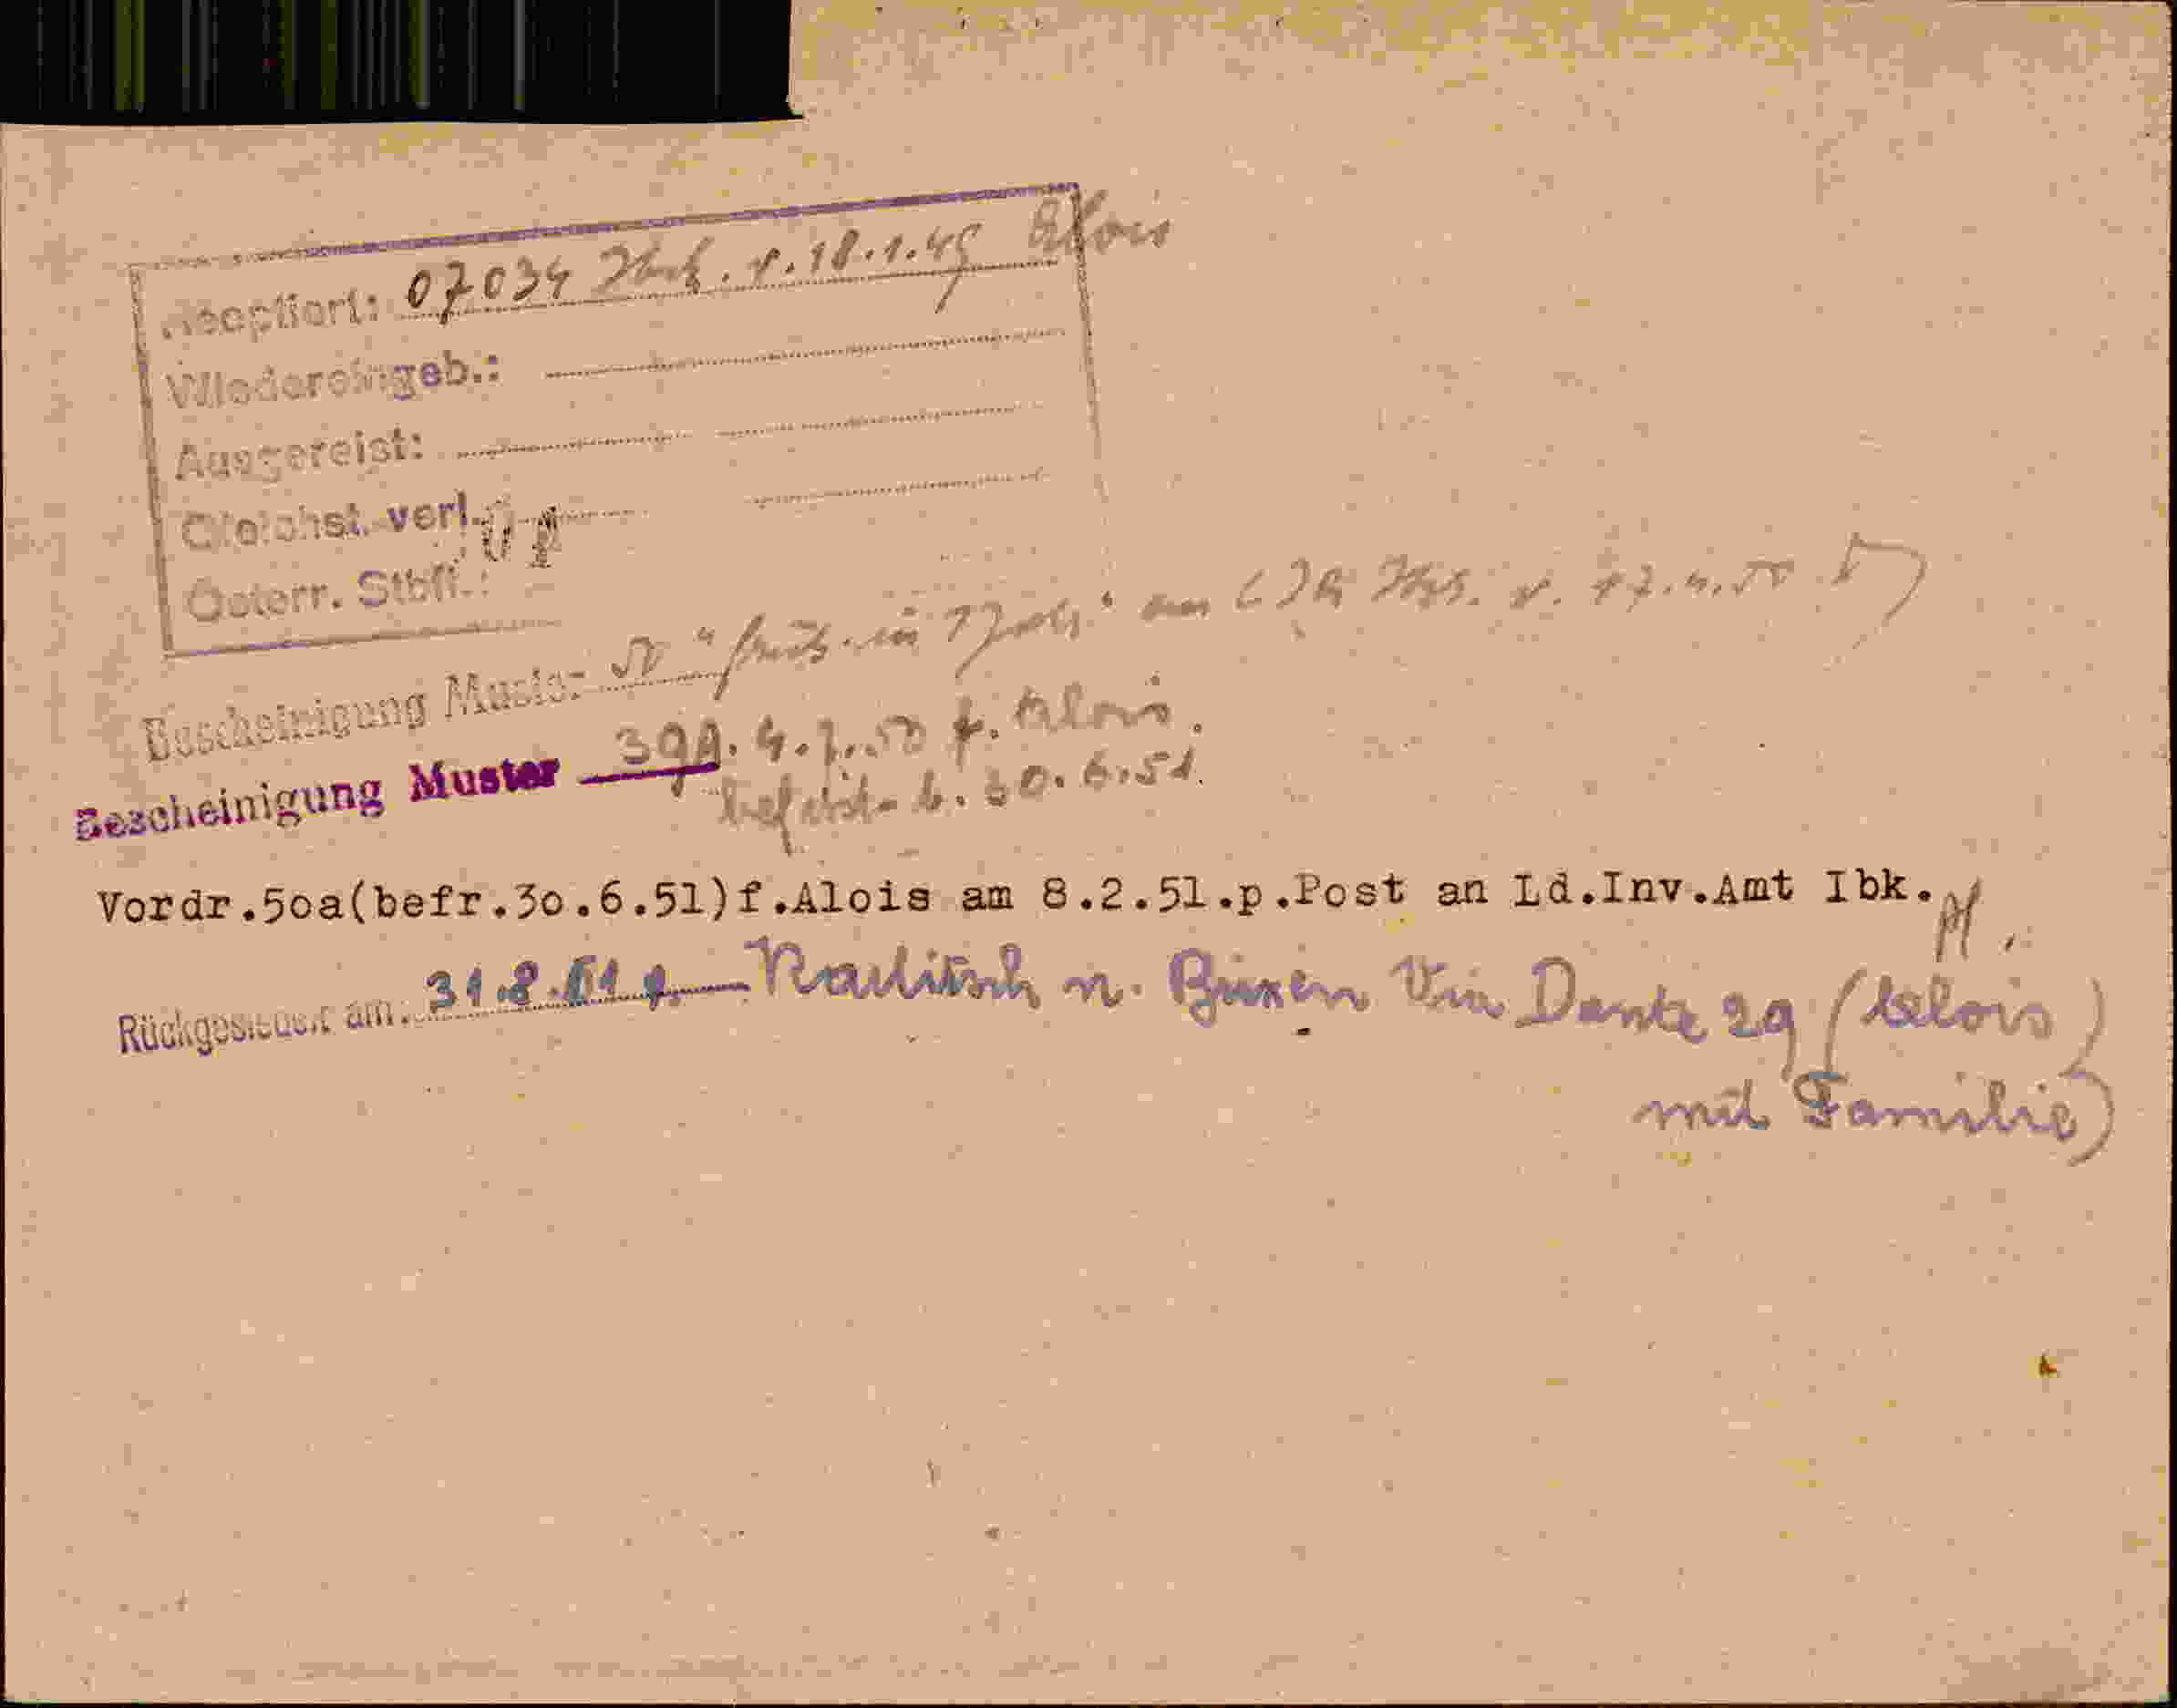 Reoptiert: 07034 Ibk. v. 18.1.49 Alois
Wiedereingeb.:
Ausgereist:
Gleichst. verl.
Österr. Stbft.:
Bescheinigung Muster 50 " in Tirol" am v. 17.4.50
Bescheinigung Muster 39A. 4.7.50 f. Alois.
befrist. b. 30.6.51.
Vordr.50a(befr.30.6.51)f.Alois am 8.2.51.p.Post an Ld.Inv.Amt Ibk.
Rückgesiedelt am: 31.8.51 n. Brixen Via Dante 29 (Alois)
mit Familie)